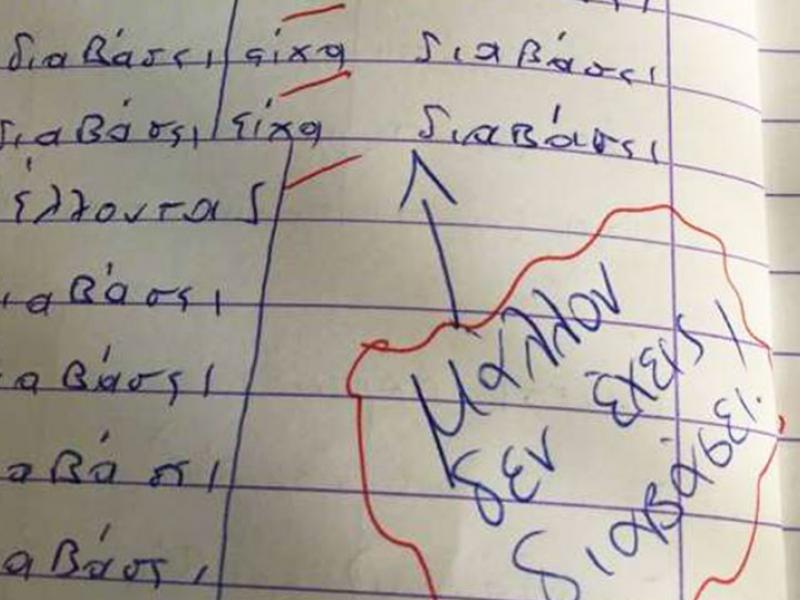 διαβάσει είχα διαβάσει
διαβάσει είχα διαβάσει
έλλοντας
ιαβάσει
αβάσει
αβάσει
αβάσει
Μάλλον
δεν έχεις
διαβάσει!